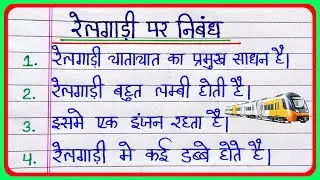 रेलगाड़ी पर निबंध
1. रेलगाड़ी यातायात का प्रमुख साधन है।
2. रेलगाड़ी बहुत लम्बी होती है।
3. इसमे एक इंजन रहता है।
4. रेलगाड़ी मे कई डब्बे होते है।